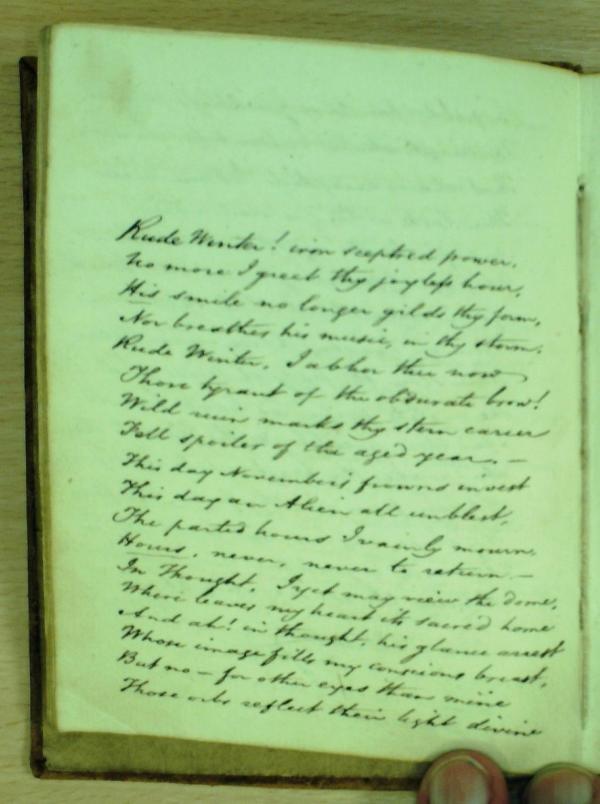 Rude Winter! iron sceptred power,
No more I greet thy joyless hour,
His smile no longer gilds thy form,
Nor breathes his music, in thy storm.
Rude Winter, I abhor thee now
Thou tyrant of the obdurate brow!
Wild ruin marks thy stern career
Fell spoiler of the aged year. —
This day November's frowns invest
This day an Alien all unblest,
The parted hours I vainly mourn.
Hours, never, never to return. —
In Thought, I yet may view the dome,
Where leaves my heart its sacred home
And ah! in thought, his glance arrest
Whose image fills my conscious breast,
But no — for other eyes than mine
Those orbs reflect their light divine